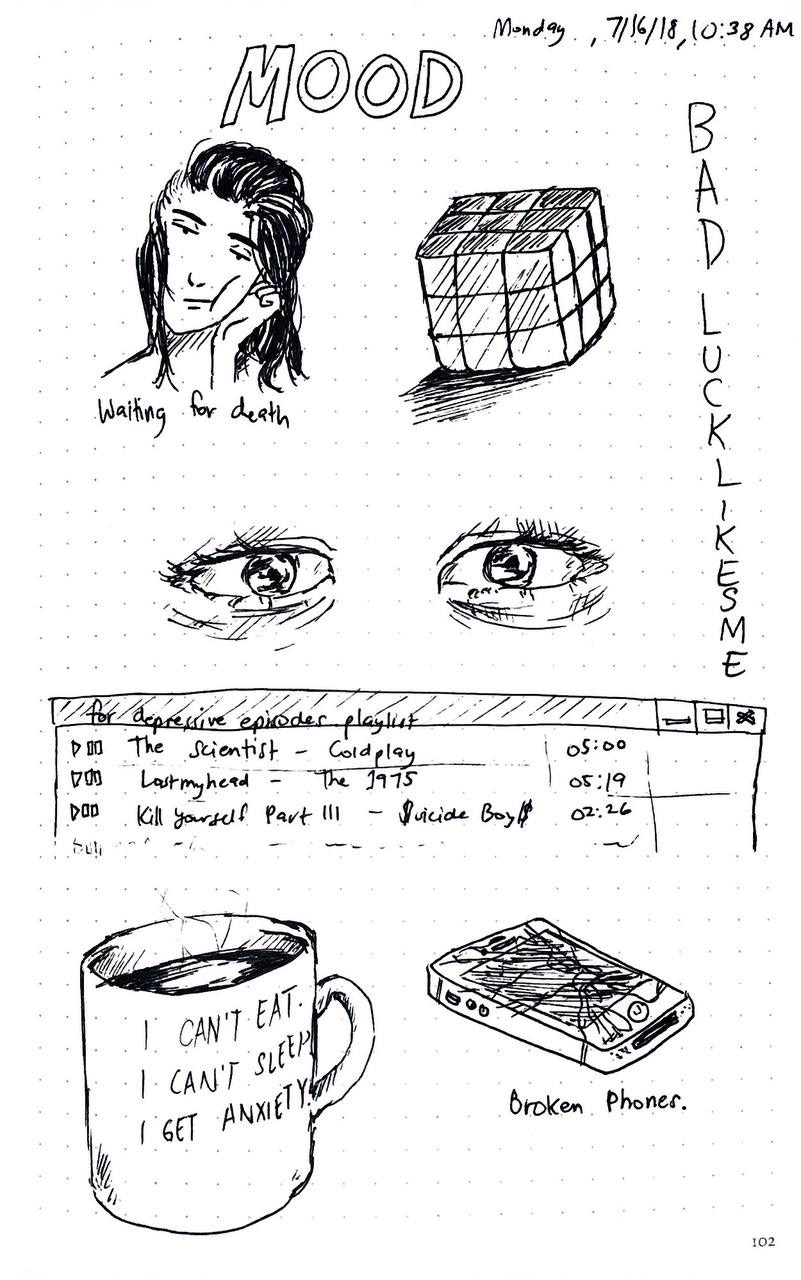 Monday , 7/16/18, 10:38 AM
MOOD
BAD LUCK LIKES ME
Waiting for death
for depressive episodes playlist
The Scientist - Coldplay 05:00
Lostmyhead - The 1975 05:19
Kill Yourself Part III - $uicide Boy$ 02:26
I CAN'T EAT.
I CAN'T SLEEP.
I GET ANXIETY.
Broken Phones.
102